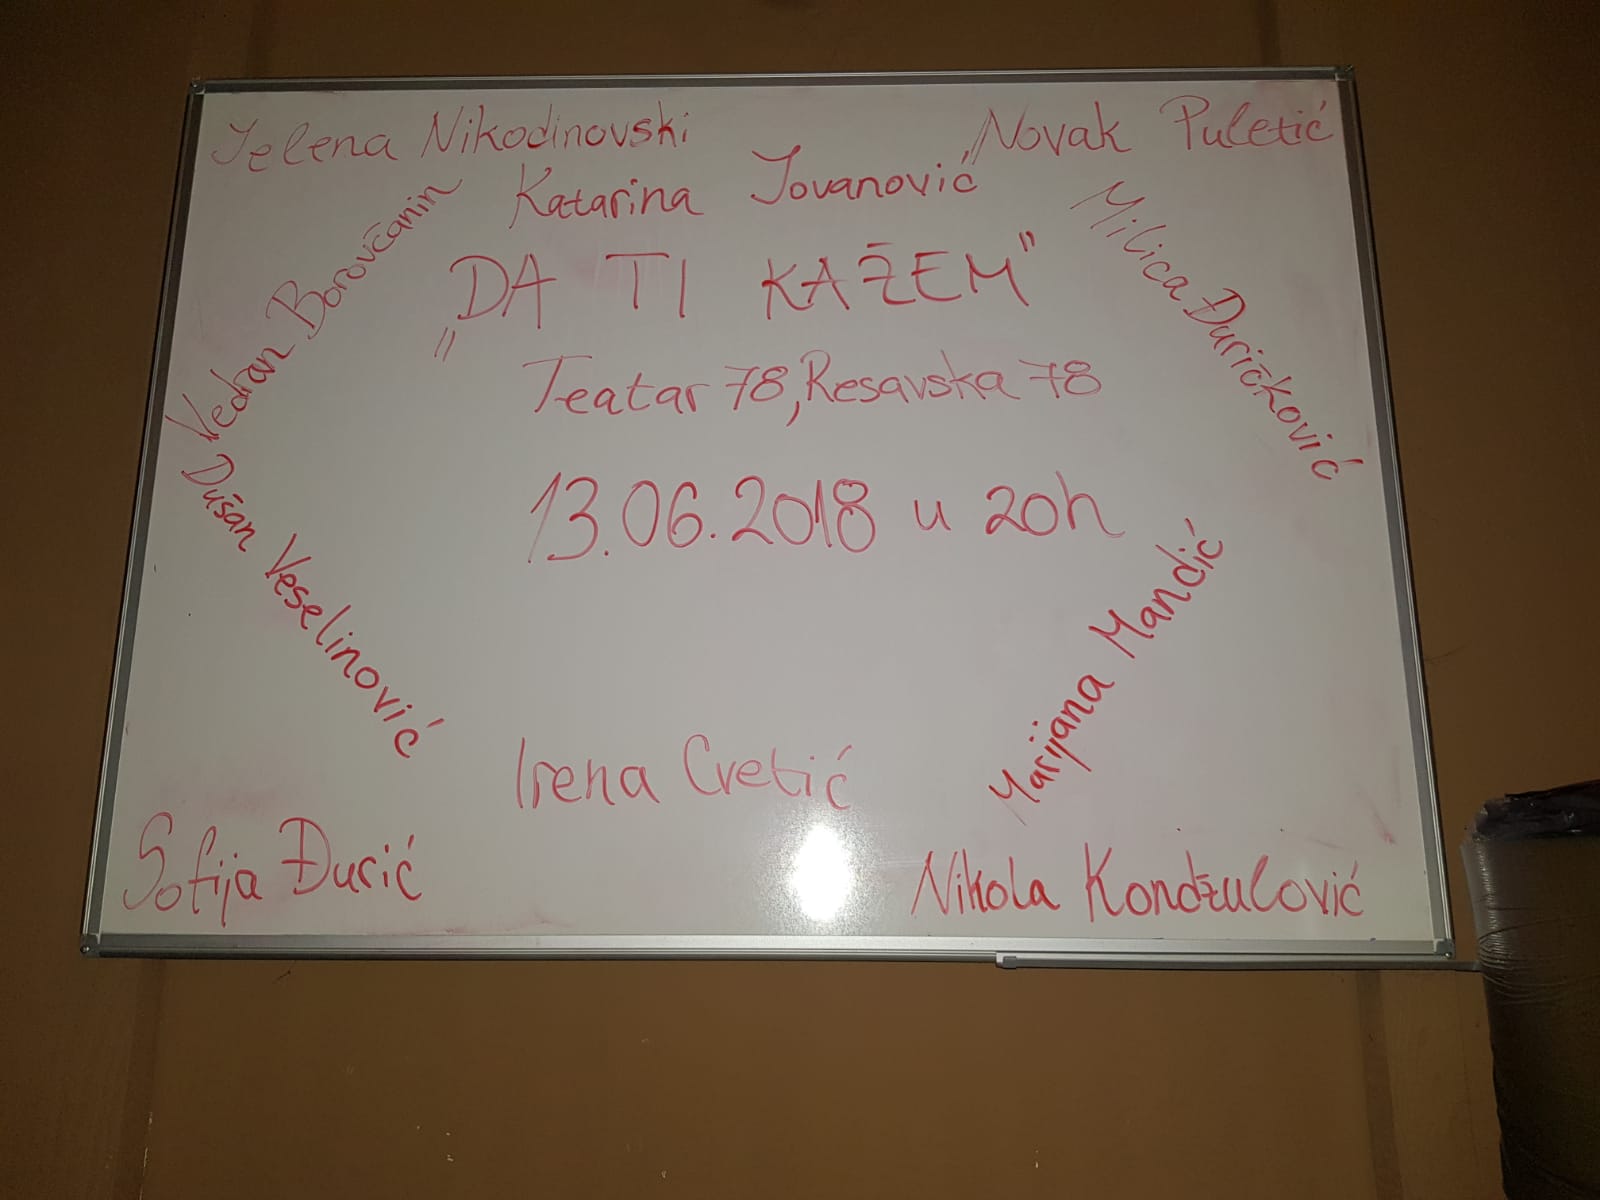 Jelena Nikodinovski
Novak Puletić
Katarina Jovanović
Vedran Borovčanin
Milica Đuričković
„DA TI KAŽEM"
Teatar 78, Resavska 78
13.06.2018 u 20h
Dušan Veselinović
Marijana Mandić
Irena Cvetić
Sofija Đurić
Nikola Kondžulović